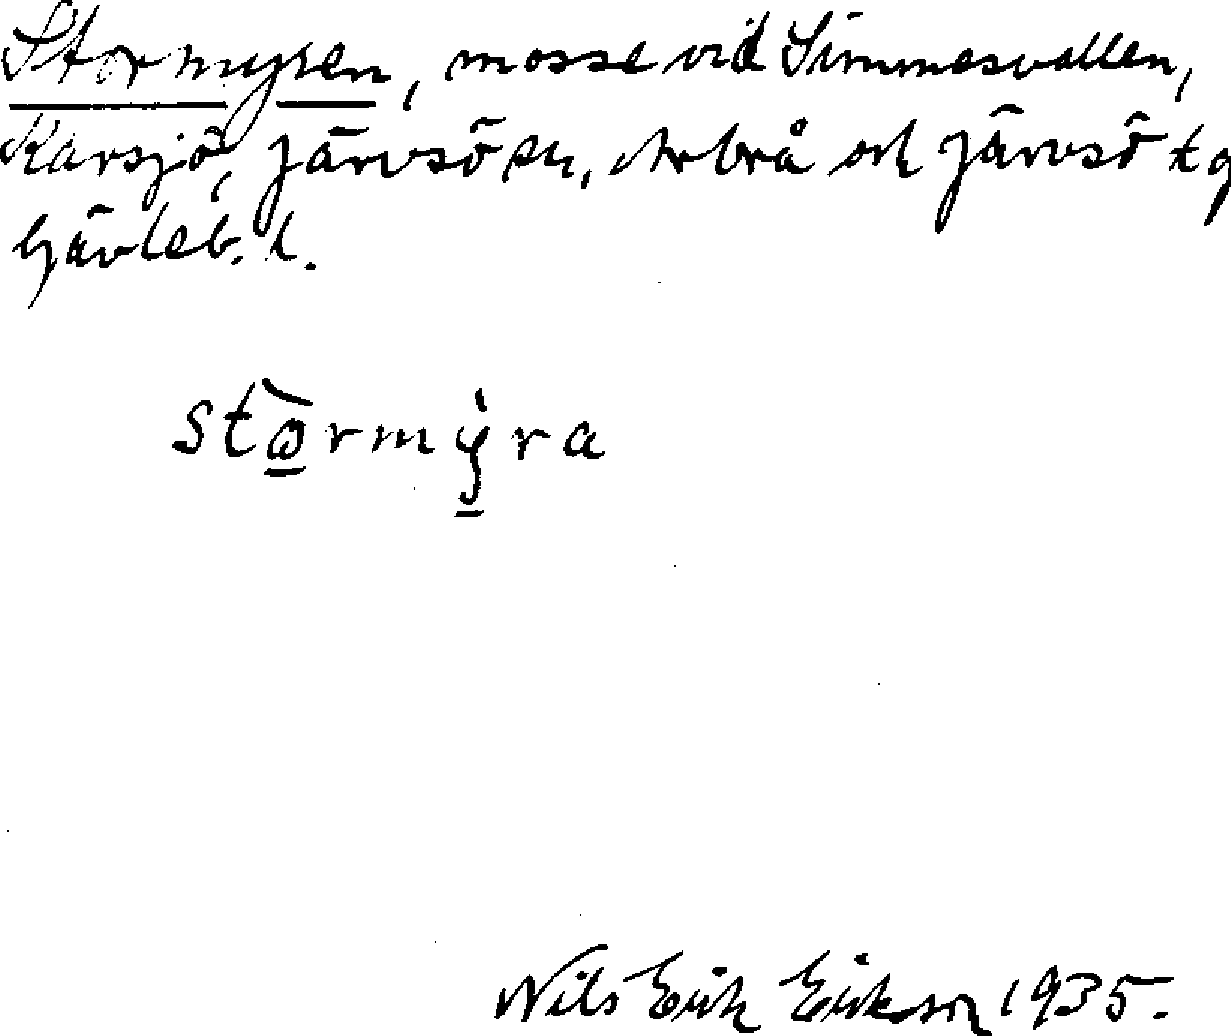 Stormyren, mosse vid Simmesvallen,
Karsjö, Järvsö sn, Arbrå och Järvsö tg
Gävleb. l.
stòrmẏ̱ra
Nils Erik Erikson 1935.